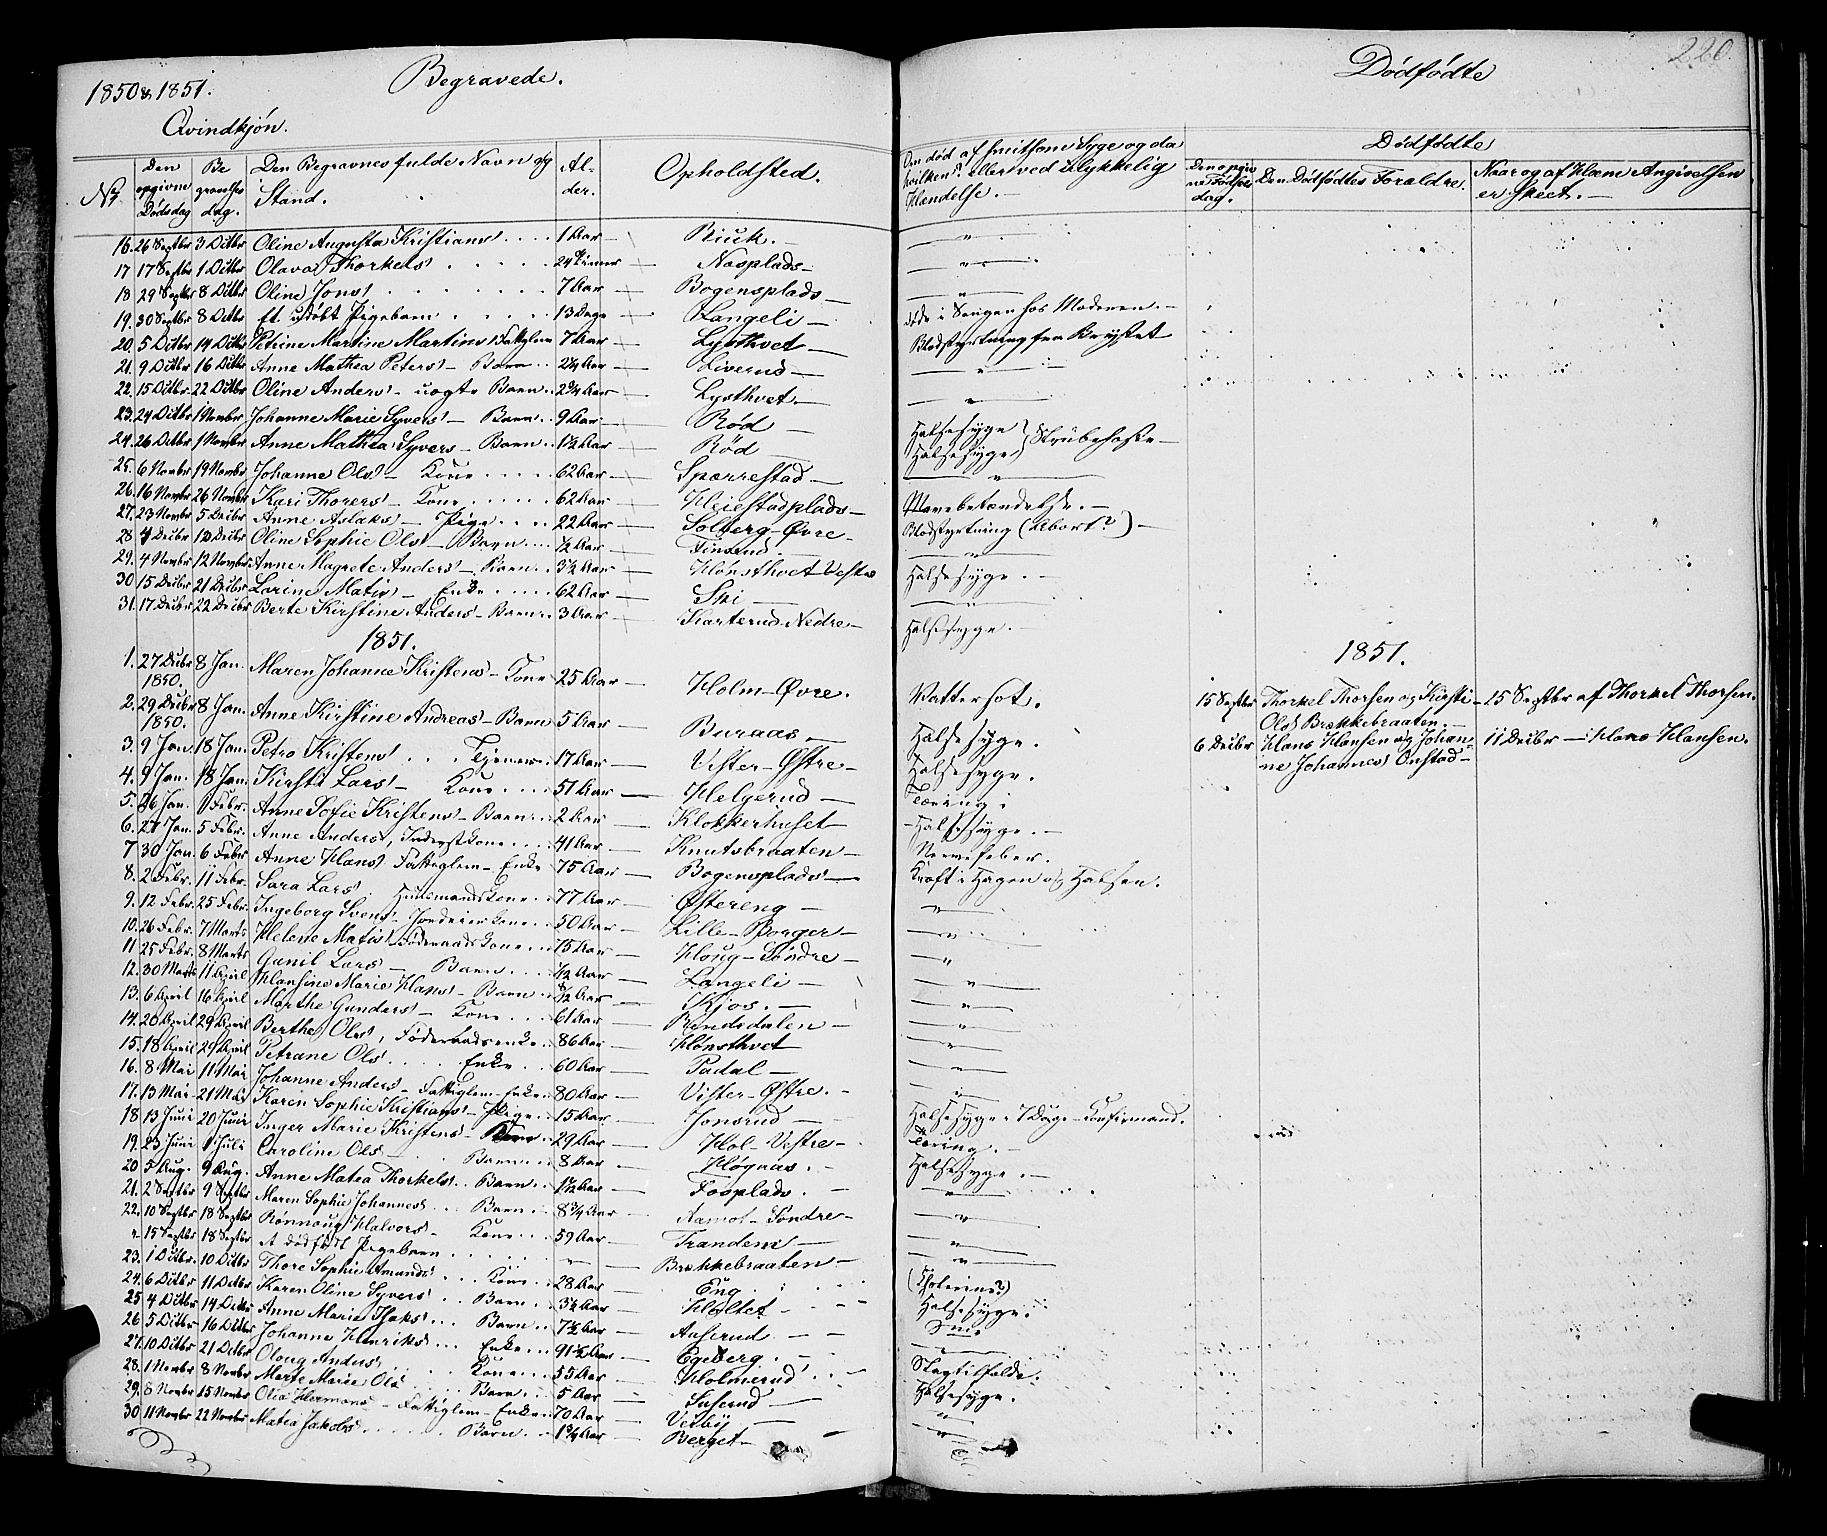 1850 & 1851. Begravede.
Qvindkjøn.
No. Den opgivne Dødsdag Begravelses dag. Den Begravnes fulde Navn og Stand. Alder. Opholdsted.
16. 26 Septbr 3 Octbr Oline Augusta Kristians 1 Aar — Biuk. —
17 17 Septbr 1 Octbr Olava Thorkels 24 Timer — Nasplads —
18 29 Septbr 8 Octbr Oline Jons 7 Aar — Bogensplads —
19. 30 Septbr 8 Octbr Et udøbt Pigebarn 13 Dage — Langeli —
20. 5 Octbr 14 Octbr Petrine Martine Martins Fattiglem 7 Aar — Lysthvet —
21. 9 Octbr 16 Octbr Anne Mathea Peters — Barn 2½ Aar — Liverud —
22. 15 Octbr 22 Octbr Oline Anders — uægte Barn 2¾ Aar — Lysthvet —
23. 24 Octbr 1 Novmbr Johanne Marie Syvers — Barn 9 Aar — Rød —
24. 26 Octbr 1 Novmbr Anne Mathea Syvers — Barn 1½ Aar — Rød —
25. 6 Novmbr 19 Novmbr Johanne Ols — Kone 62 Aar — Sperrestad —
26. 16 Novmbr 26 Novmbr Kari Thorers — Kone 62 Aar — Heiestadplads —
27. 23 Novmbr 5 Decbr Anne Aslaks — Pige 22 Aar — Solberg-Øvre —
28 4 Decbr 12 Decbr Oline Sophie Ols — Barn ½ Aar — Finsrud —
29. 4 Novmbr 12 Novmbr Anne Magrete Anders — Barn 3½ Aar — Hønsthvet Vestre
30 15 Decbr 21 Decbr Larine Matis — Enke 62 Aar — Ski —
31. 17 Decbr 22 Decbr Berte Kirstine Anders — Barn 3 Aar — Karterud Nedre —
1851.
1. 27 Decbr 1850. 8 Jan. Maren Johanne Kristens — Kone 25 Aar — Holm-Øvre.
2. 29 Decbr 1850. 8 Jan. Anne Kirstine Andreas — Barn 5 Aar — Buraas —
3. 9 Jan. 18 Jan. Petro Kristens Tjener 17 Aar — Vister-Østre —
4. 9 Jan. 18 Jan. Kirsti Lars — Kone 51 Aar — Helgerud —
5. 26 Jan. 1 Febr. Anne Sofie Kristens — Barn 2 Aar — Klokkerhuset —
6. 27 Jan. 5 Febr. Anne Anders, Inderstkone 41 Aar — Knutsbraaten —
7 30 Jan 6 Febr Anne Hans Fattiglem — Enke 75 Aar — Bogensplads —
8. 2 Febr. 11 Febr. Sara Lars Huusmandskone 77 Aar — Østereng —
9. 12 Febr. 25 Febr. Ingeborg Svens — Gaardeierskone 50 Aar — Lille-Borger —
10. 26 Febr. 7 Marts Helene Matis Føderaadskone 75 Aar — Houg-Søndre —
11 25 Febr. 8 Marts Gunil Lars — Barn ½ Aar — Langeli —
12. 30 Marts 11 April Hansine Marie Hans — Barn ½ Aar — Kjos. —
13. 6 April 16 April Marthe Gunders — Kone 61 Aar — Rendsdalen —
14. 20 April 29 April Berthe Ols, Føderaadsenke 86 Aar — Hønsthvet
15. 18 April 29 April Petrane Ols Enke 60 Aar — Padal —
16. 8 Mai 11 Mai Johanne Anders — Fattiglem — Enke 80 Aar — Vister-Østre. —
17. 13 Mai 21 Mai Karen Sophie Kristians — Pige 15 Aar — Jonsrud —
18 13 Juni 20 Juni Inger Marie Kristens — Kone 29 Aar — Hol-Vestre —
19. 23 Juni 1 Juli Caroline Ols — Barn 8 Aar — Høgnas. —
20 5 Aug. 9 Aug. Anne Matea Thorkels Barn 1½ Aar — Fosplads. —
21. 2 Septbr 9 Septbr Maren Sophie Johannes Barn 8¾ Aar — Aamot-Søndre —
22. 10 Septbr 18 Septbr Rønnaug Halvors — Kone 59 Aar — Trandem —
" 15 Septbr 18 Septbr Et dødfødt Pigebarn " — Brekkebraaten —
23. 1 Octbr. 10 Octbr Thore Sophie Amunds Kone 28 Aar — Eng
24. 6 Octbr 11 Octbr Karen Oline Syvers Barn 3½ Aar — Holtet —
25 4 Octbr 14 Octbr Anne Marie Isaks Barn 7½ Aar — Auserud —
26 5 Octbr 16 Octbr Johanne Henriks Enke 91½ Aar — Egeberg. —
27. 10 Octbr 21 Octbr Oloug Anders Kone 55 Aar — Holmerud
28. 1 Novmbr 8 Novmbr Marte Marie Ols Barn 5 Aar — Suserud —
29. 8 Novmbr 15 Novmbr Olia Hermans — Fattiglem — Enke 70 Aar — Vesby —
30 11 Novmbr 22 Novmbr Matea Jakobs Barn 1¾ Aar — Berget —
Dødfødte 220.
Om død af smitsom Syge og da hvilken? eller ved Ulykkelig Hændelse. —
Dødfødte
Den opgivne Fødselsdag. Den Dødfødtes Forældre. Naar og af Hvem Angivelsen er Skeet. —
— " —
— " —
— " —
døde i Sengen hos Moderen. —
Blodstyrtning fra Brystet
— " —
— " —
Halsesyge } Strubehoste —
Halsesyge }
— " —
Mavebetændelse. —
Blodstyrtning (Abort?) —
— " —
Halsesyge. —
— " —
Halsesyge. —
1851.
Vattersot.
Halsesyge.
Halsesyge.
Tæring
Halsesyge. —
Nervefeber.
Kræft i Hagen og Halsen.
15 Septbr Thorkel Thorsen og Kirsti Ols Brekkebraaten. — 15 Septbr af Thorkel Thorsen.
6 Decbr Hans Hansen og Johanne Johannes Onstad — 11 Decbr — Hans Hansen.
— " —
— " —
— " —
— " —
— " —
— " —
— " —
— " —
— " —
Halsesyge i 7 Dage — Confirmand.
Tæring. —
Halsesyge. —
— " —
— " —
— " —
— " —
Halsesyge.
Slagtilfælde.
Halsesyge.
— " —
— " —